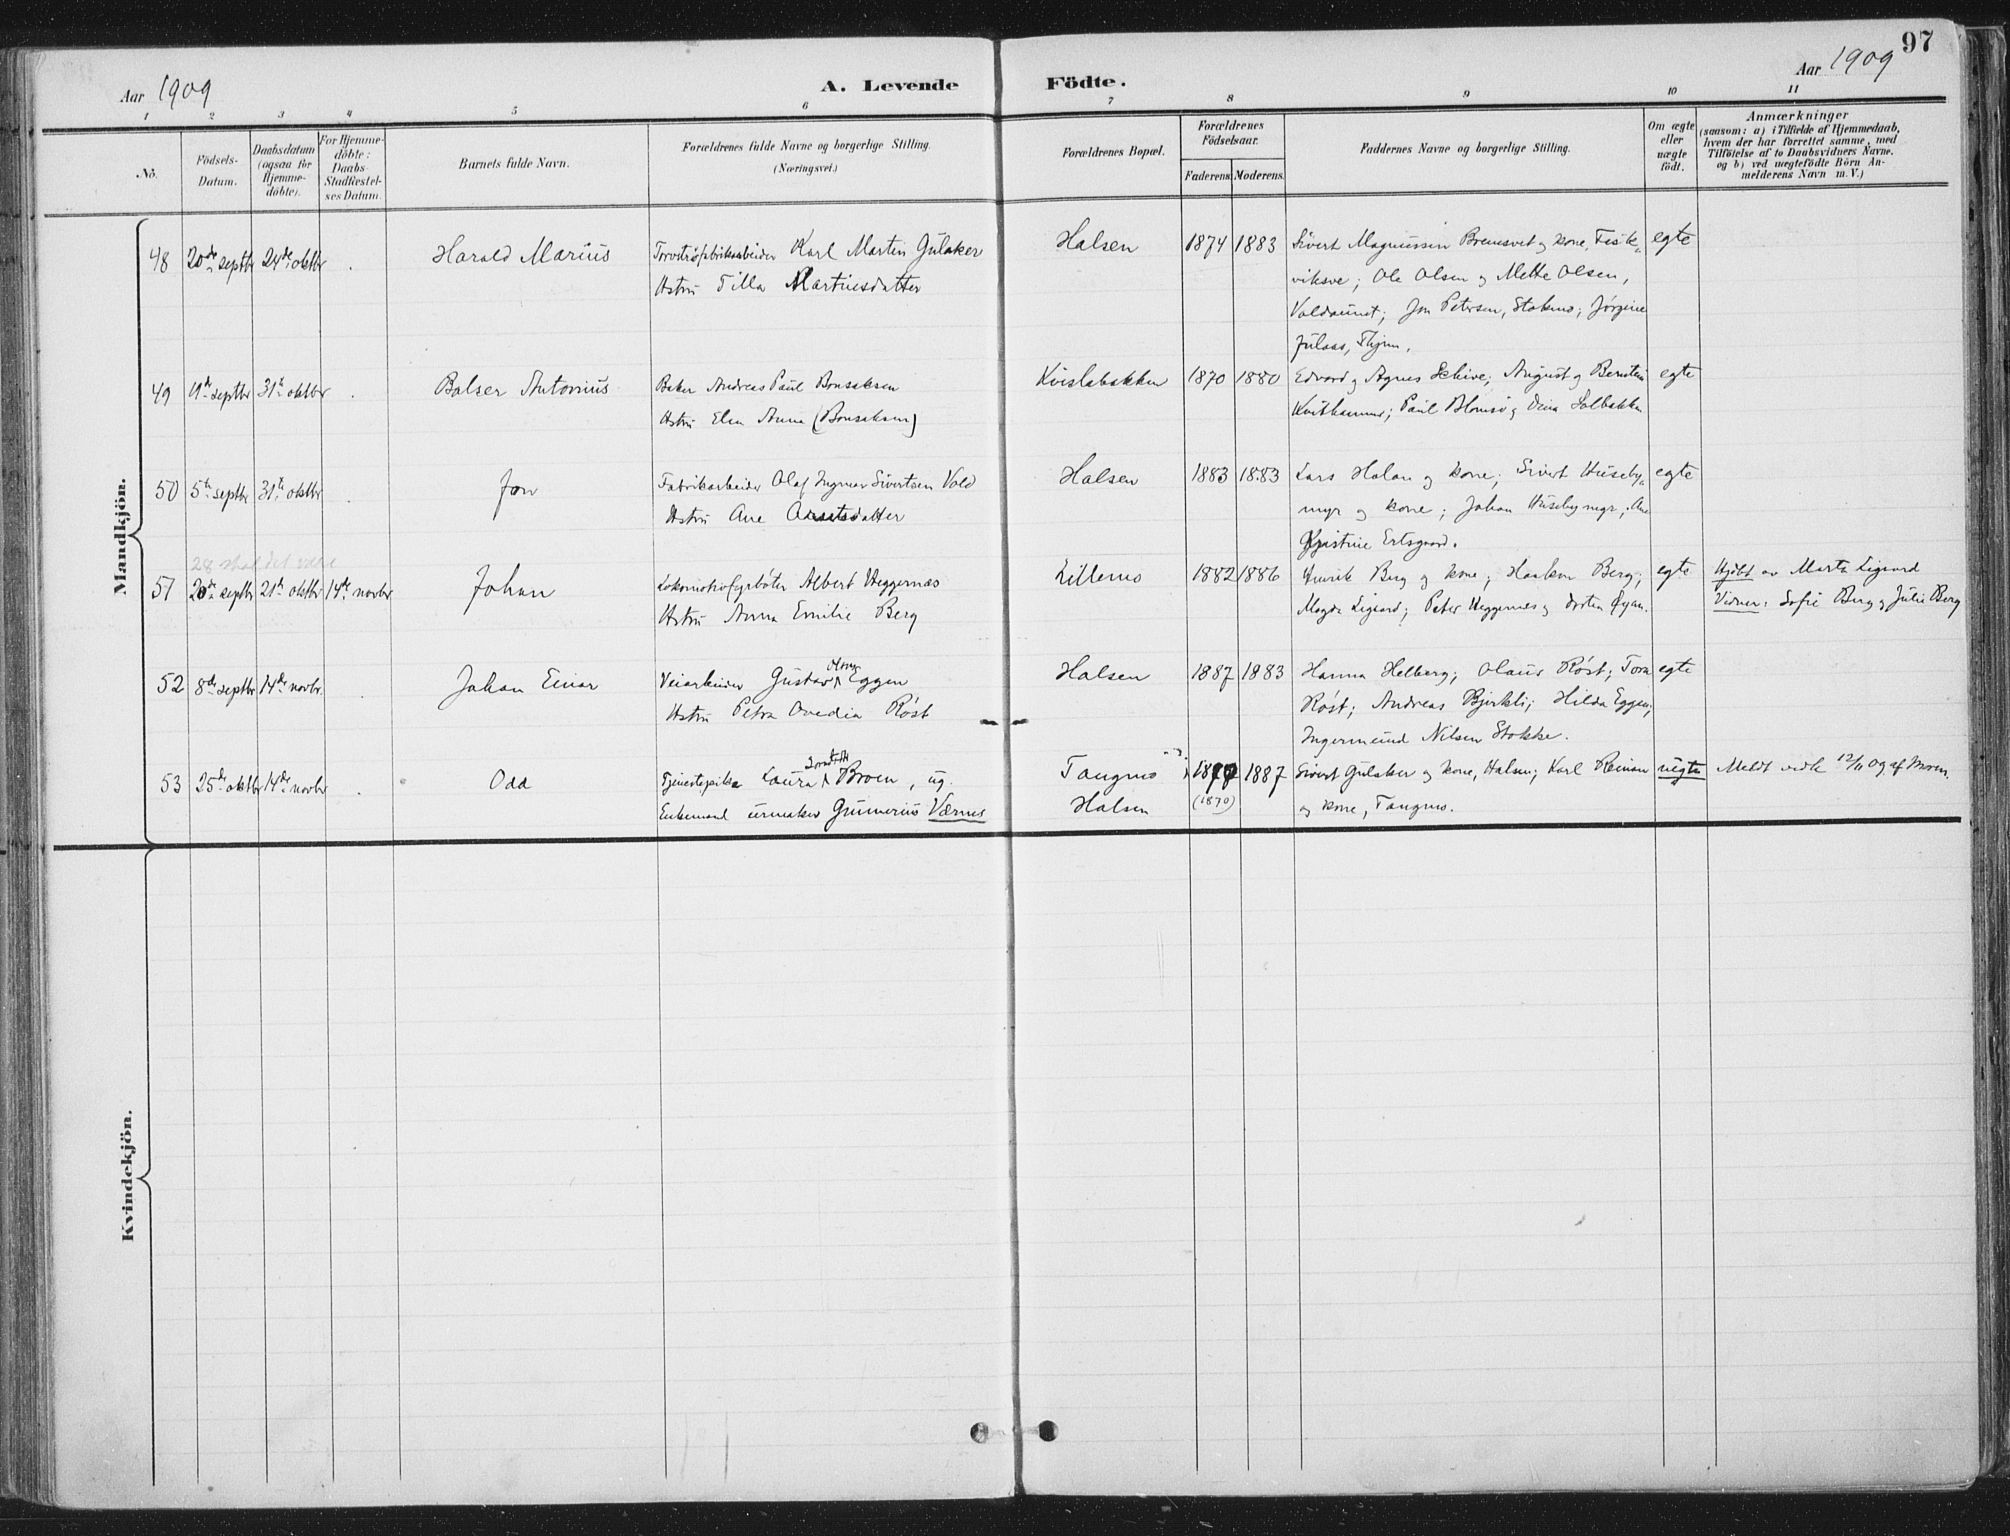 97
Aar 1909
A. Levende Födte.
Aar 1909
1 2 3 4 5 6 7 8 9 10 11
No.
Födsels-Datum.
Daabsdatum (ogsaa för Hjemmedöbte).
For Hjemmedöbte: Daabs Stadfestelses Datum.
Barnets fulde Navn.
Forældrenes fulde Navne og borgerlige Stilling. (Næringsvei.)
Forældrenes Bopæl.
Forældrenes Födselsaar.
Faderens. Moderens.
Faddernes Navne og borgerlige Stilling.
Om ægte eller uægte födt.
Anmærkninger
(saasom: a) i Tilfælde af Hjemmedaab,
hvem der har forrettet samme, med
Tilföielse af to Daabsvidners Navne.
og b) ved uægtefödte Börn An-
melderens Navn m. V.)
Mandkjön.
48 20de septbr 24de oktbr . Harald Marius Torvströfabrikarbeider Karl Martin Gulaker Halsen 1874 1883 Sivert Magnussen Bremsvet og kone, Fisk- egte
Hstru Tilla Martinsdatter viksve; Ole Olsen og Mette Olsen,
Valdaunet; Jon Petersen, Stokmo; Jørgine
Julaas,
49 9de septbr 31te oktbr . Balser Antonius Baker Andreas Paul Bonsaksen Kvislabakken 1870 1880 Edvard og Agnes Schive; August og egte
Hstru Elen Anna (Bonsaksen) Kvithammer; Paul og Dina Solbakken
50 5te septbr 31te oktbr . Jon Fabrikarbeider Olaf Ingmar Sivertsen Vold Halsen 1883 1883 Lars Halan og kone; Sivert Huseby- egte
Hstru Ane myr og kone; Johan Husebymyr; Ane
Kristine Ertsgaard.
28 skal det være
51 20de septbr 21de oktbr 14de novbr Johan Lokomotivfyrbøter Albert Heggernæs Lillemo 1882 1886 Henrik Berg og kone; Haakon Berg; egte Hjdbt av Marta Ligaard
Hstru Anna Emilie Berg Magda Ligaard; Peter Heggernes og Øyan. Vidner: Sofie Berg og Julie Berg
52 8de septbr 14de novbr. . Johan Einar Veiarbeider Gustav Eggen Halsen 1887 1883 Hanna Helberg; Olaus Røst; Tora egte
Hstru Petra Ovedia Røst Røst; Andreas Bjerkli; Hilda Eggen;
Nilsen Stokke.
53 25de oktbr 14de novbr . Odd Tjenestepike Laura Broen, ug. Tangmo 1887 Sivert Gulaker og kone, Halsen; Karl Reinan uegte Meldt vedk 12/11 09 af moren.
Enkemand urmaker Gunerius Værnes Halsen (1870) og kone, Tangmo.
Kvindekjön.